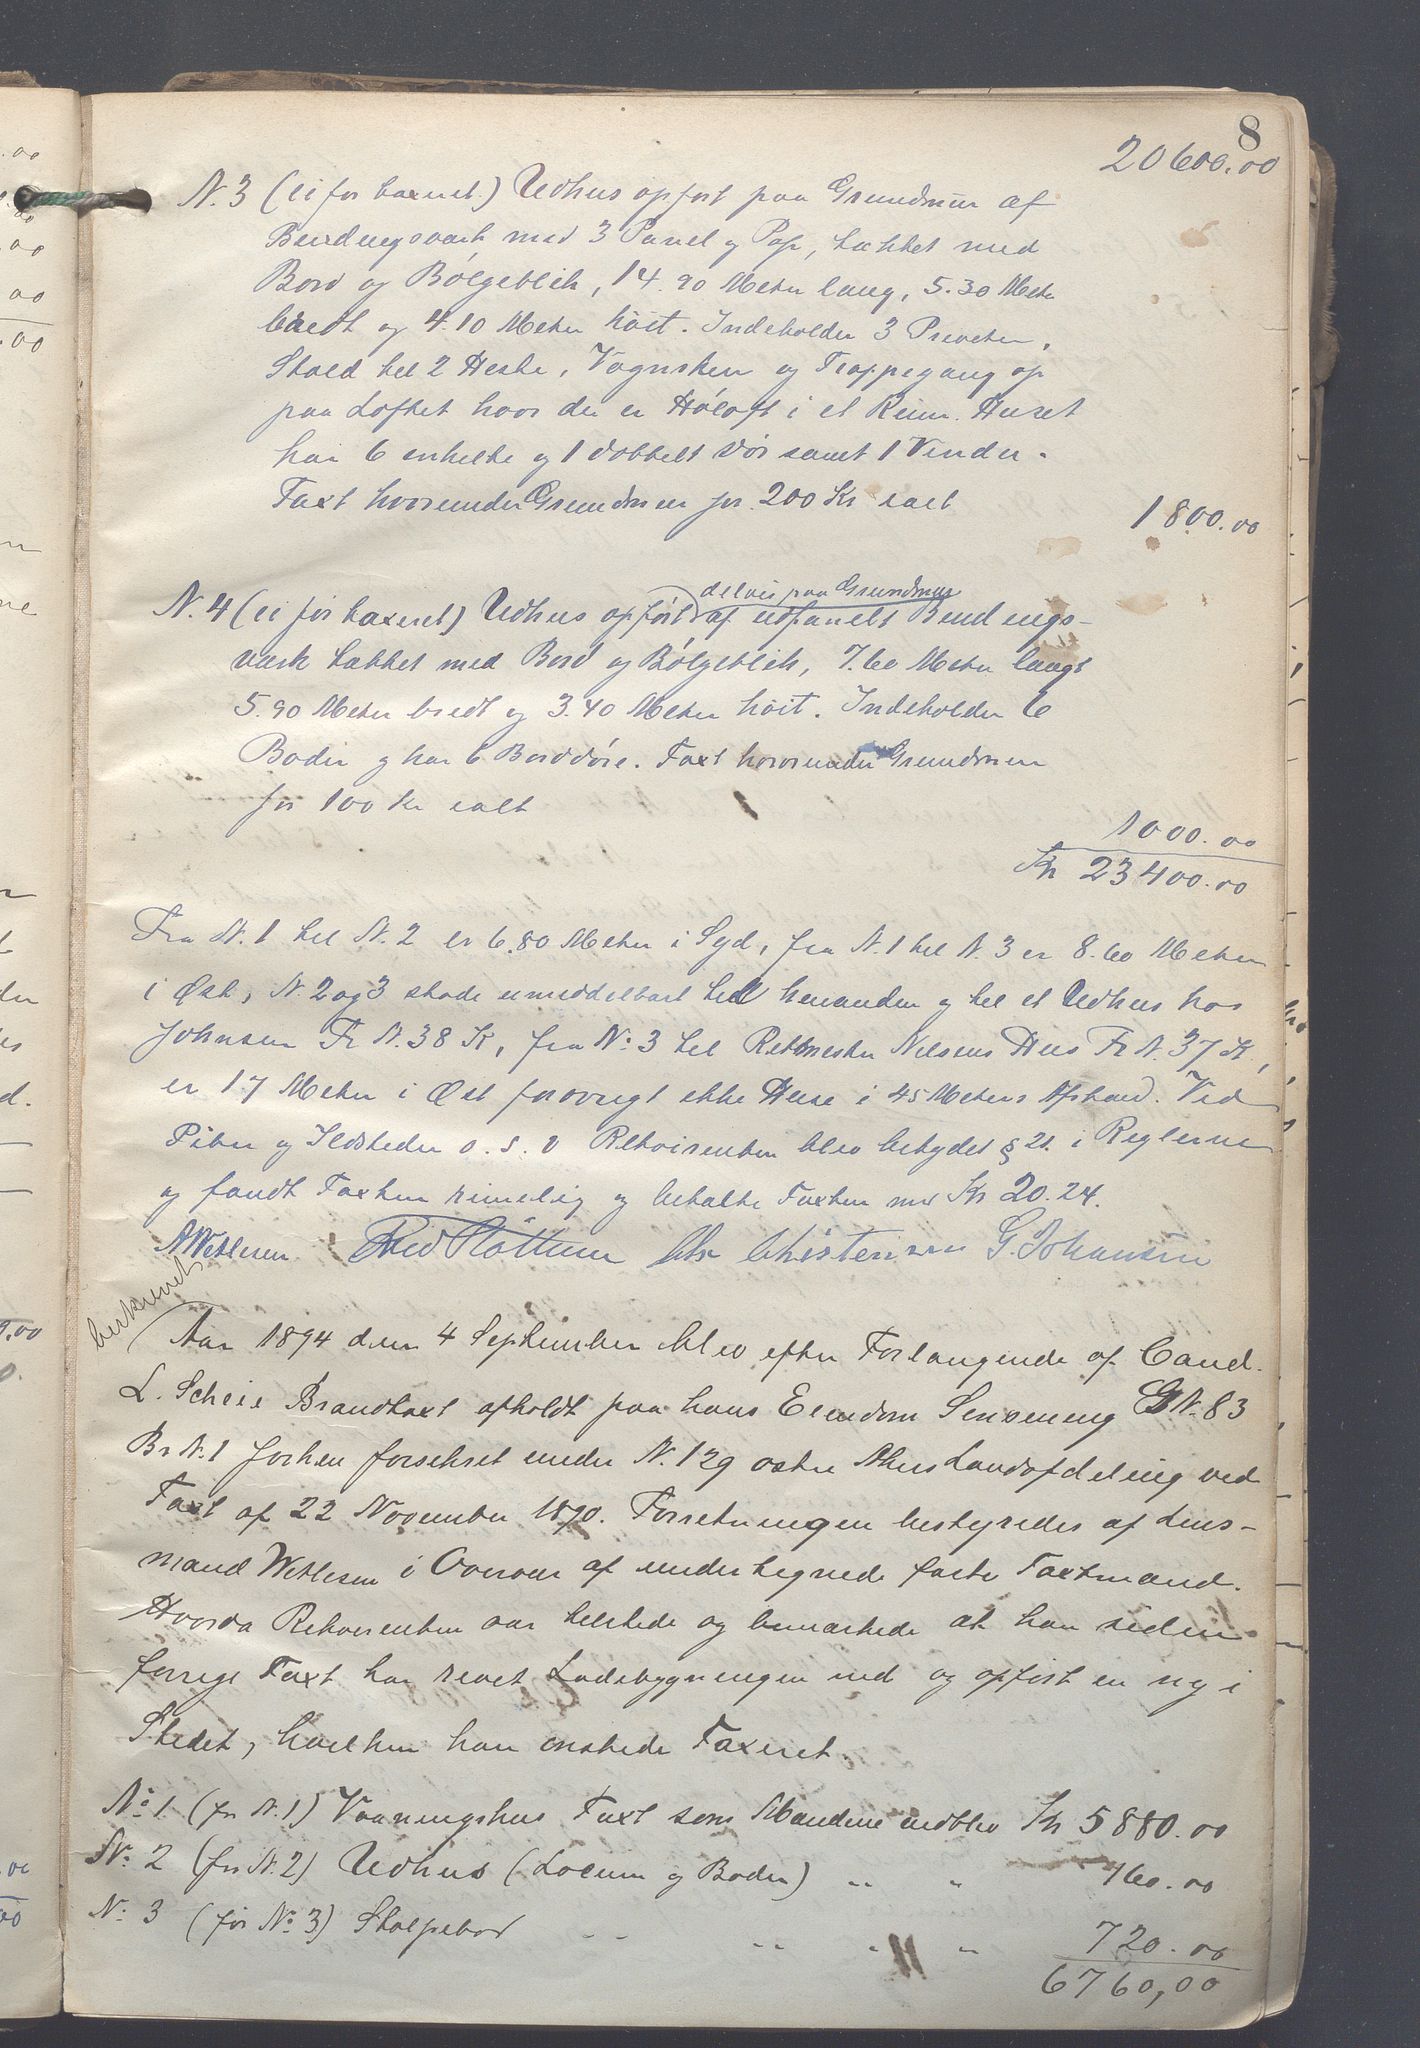 8
20600.00
N. 3 (ei før taxeret.) Udhus opført paa Grundmur af
Bindingsværk med 3 Panel og Pap, tækket med
Bord og Bølgeblik, 14.90 Meter lang, 5.30 Meter
bredt og 4.10 Meter høit. Indeholder 3 Priveter,
Stald til 2 Heste, Vognskur og Trappegang op
paa Loftet hvor der er Høloft i et Rum. Huset
har 6 enkelte og 1 dobbelt Dør samt 1 Vindu.
Taxt hvorunder Grundmur for 200 Kr ialt
1800.00
N. 4 (ei før taxeret) Udhus opført delvis paa Grundmur af udpanelt Bindings-
værk tækket med Bord og Bølgeblik, 7.60 Meter langt
5.90 Meter bredt og 3.40 Meter høit. Indeholder 6
Boder og har 6 Borddøre. Taxt hvorunder Grundmur
for 100 Kr ialt
1000.00
Kr 23400.00
Fra N. 1 til N. 2 er 6.80 Meter i Syd, fra N. 1 til N. 3 er 8.60 Meter
i Øst, N. 2 og 3 støde umiddelbart til hinanden og til et Udhus hos
Johnsen Fr N. 38 K, fra No 3 til Rittmester Nilsens Hus Fr N. 37 K,
er 17 Meter i Øst forøvrigt ikke Huse i 45 Meters Afstand. Ved
Piber og Ildsteder o. s. v Rekvirenten blev betydet § 21. i Reglerne
og fandt Taxten rimelig og betalte Taxten med Kr 20.24.
AWetlesen Chr Christensen G. Johansen
beskrevet
Aar 1894 den 4 September blev efter Forlangende af Cand.
L. Scheie Brandtaxt afholdt paa hans Eiendom Sensenung G N. 83
Br N. 1 forhen forsikret under N. 129 østre Akers Landafdeling ved
Taxt af 22 November 1890. Forretningen bestyredes af Lens-
mand Wetlesen i Overvær af undertegnede faste Taxtmænd.
Hvorda Rekvirenten var tilstede og bemærkede at han siden
forrige Taxt har revet Ladebygningen ned og opført en ny i
Stedet, hvilken han ønskede Taxeret.
No 1 (før N. 1) Vaaningshus Taxt som Mændene nedblev Kr 5880.00
No 2 (før N. 2) Udhus (Locum og Boder) " " 160.00
No 3 (før No 3) Stolpebod " " " " 720.00
6760,00